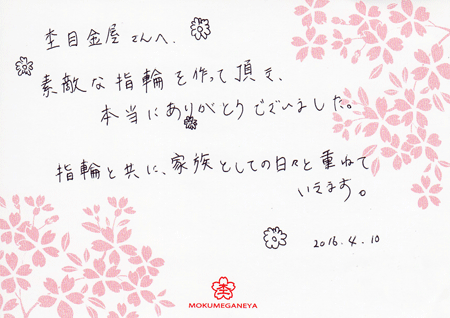 杢目金屋さんへ、
素敵な指輪を作って頂き、
本当にありがとうございました。
指輪と共に、家族としての日々と重ねて
いきます。
2016.4.10
MOKUMEGANEYA